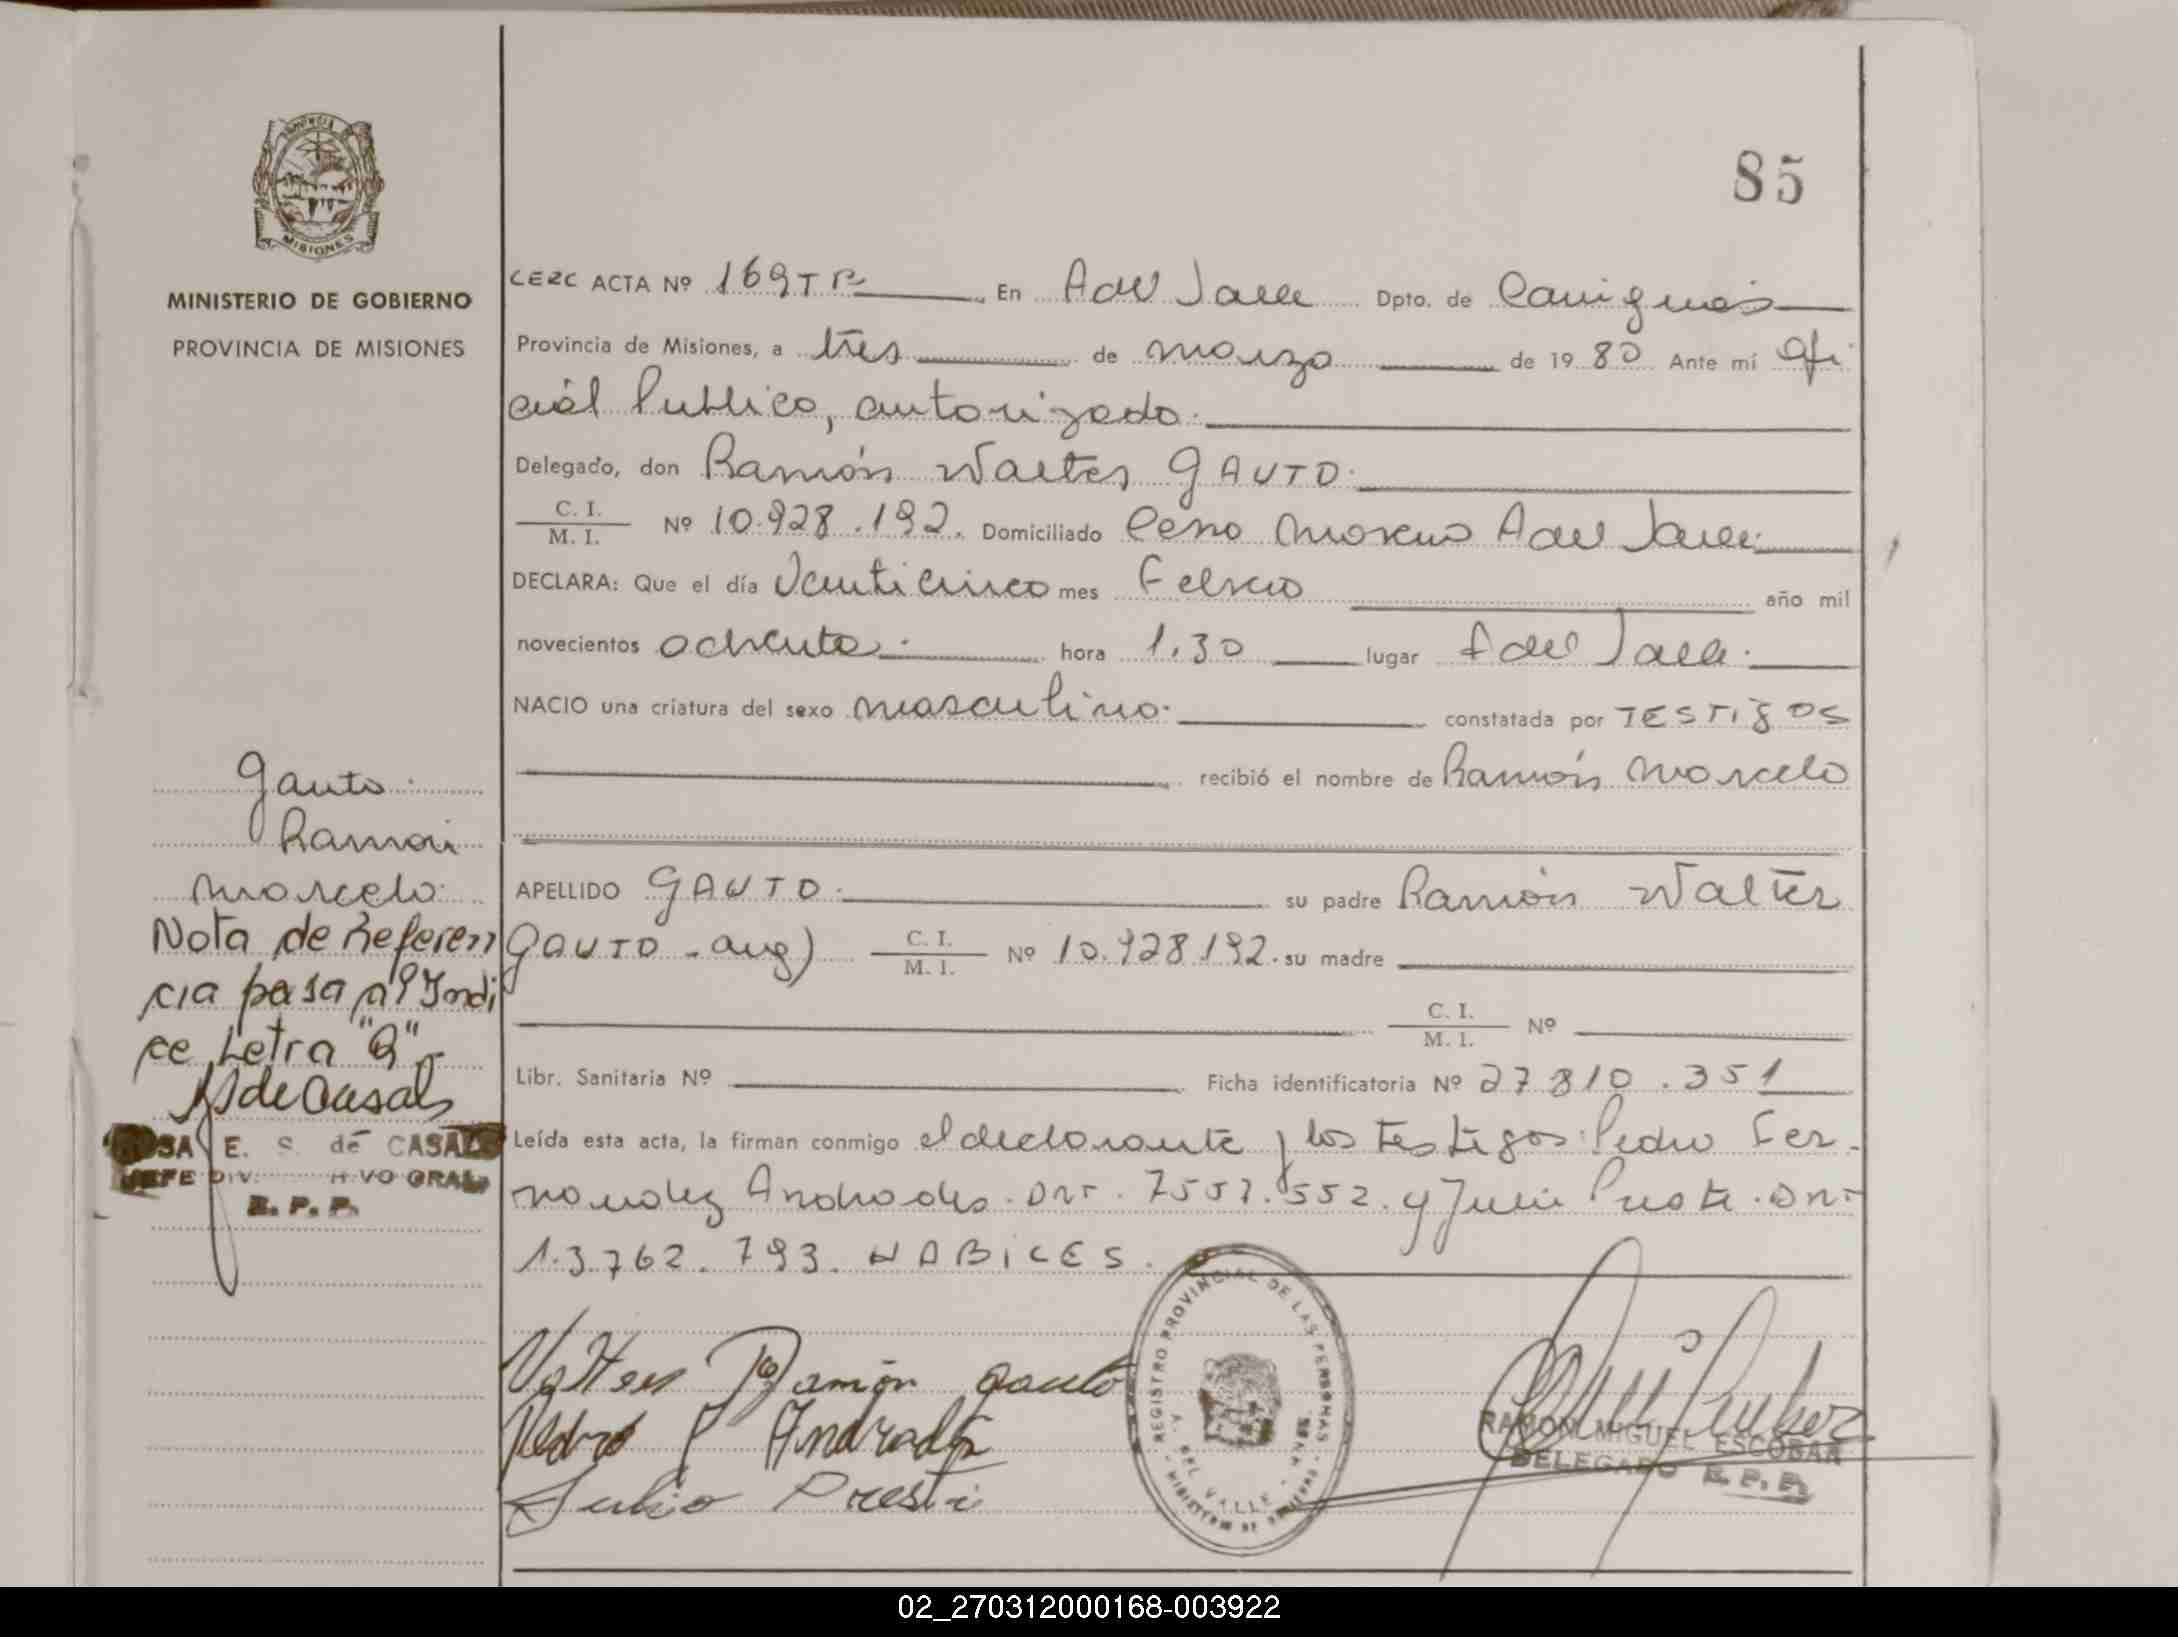 85
PROVINCIA
MISIONES
MINISTERIO DE GOBIERNO
PROVINCIA DE MISIONES
CE2C ACTA Nº 169 TR En A del Valle Dpto. de Cainguas
Provincia de Misiones, a tres de marzo de 1980 Ante mí Ofi
cial Publico, autorizado.
Delegado, don Ramón Walter GAUTO.
C. I.
M. I. Nº 10.928.192. Domiciliado Cerro Moreno A del Valle.
DECLARA: Que el día Veinticinco mes Febrero año mil
novecientos ochenta. hora 1.30 lugar A del Valle.
NACIO una criatura del sexo masculino. constatada por TESTIGOS
recibió el nombre de Ramón Marcelo
APELLIDO GAUTO. su padre Ramón Walter
GAUTO - arg) C. I.
M. I. Nº 10.928.192. su madre
C. I.
M. I. Nº
Libr. Sanitaria Nº Ficha identificatoria Nº 27 810.351
Leída esta acta, la firman conmigo el declarante y los testigos: Pedro Fer-
nandez Andrade. DNI. 7557.552. y Julio Preste. DNI
13.762.793. HABILES.
Gauto.
Ramón
Marcelo.
Nota de Referen
cia pasa al Indi
ce Letra "G"
S de Casals
ROSA E. S. de CASALS
JEFE DIV. HIVO GRAL.
R. P. P.
Walter Ramón Gauto
Pedro F Andrade
Julio Preste
REGISTRO PROVINCIAL DE LAS PERSONAS
A. DEL VALLE
MINISTERIO DE GOBIERNO
RAMON MIGUEL ESCOBAR
DELEGADO R. P. P.
02_270312000168-003922